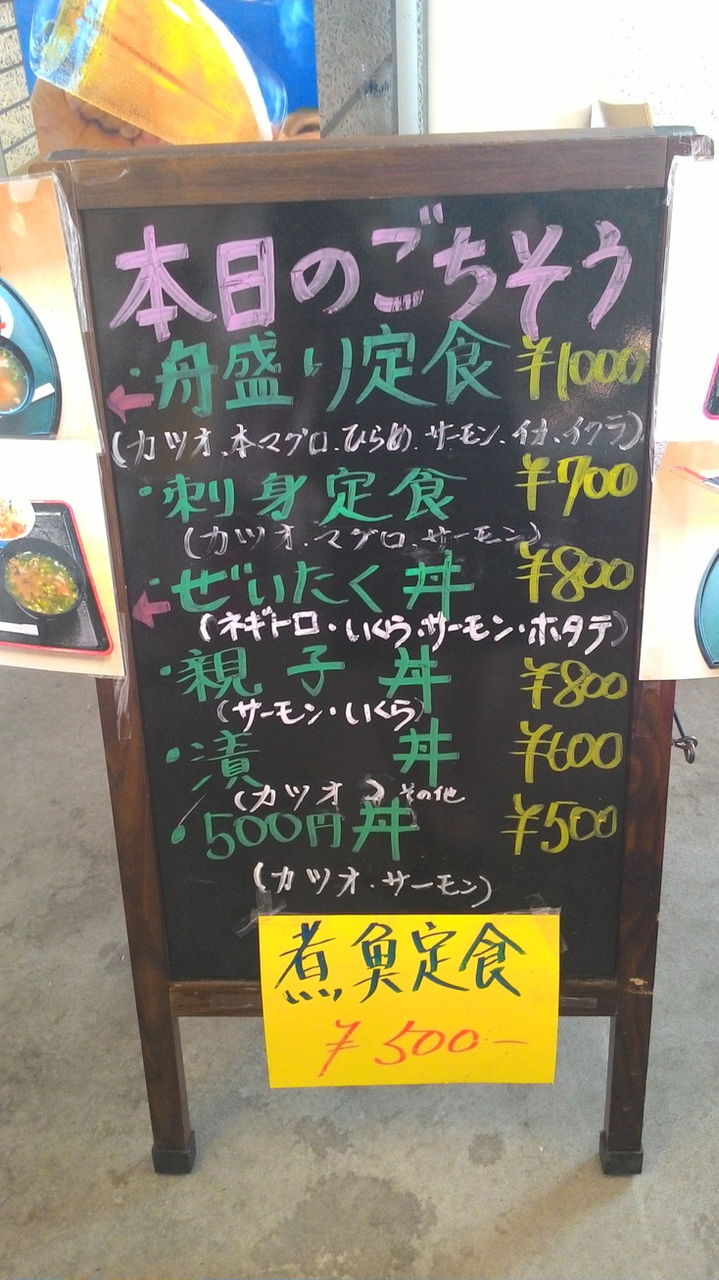 本日のごちそう
・舟盛り定食 ¥1000
(カツオ、本マグロ、ひらめ、サーモン、イカ、イクラ)
・刺身定食 ¥700
(カツオ、マグロ、サーモン)
・ぜいたく丼 ¥800
(ネギトロ・いくら・サーモン・ホタテ)
・親子丼 ¥800
(サーモン・いくら)
・漬丼 ¥600
(カツオ その他
・500円丼 ¥500
(カツオ・サーモン)
煮魚定食
¥500-